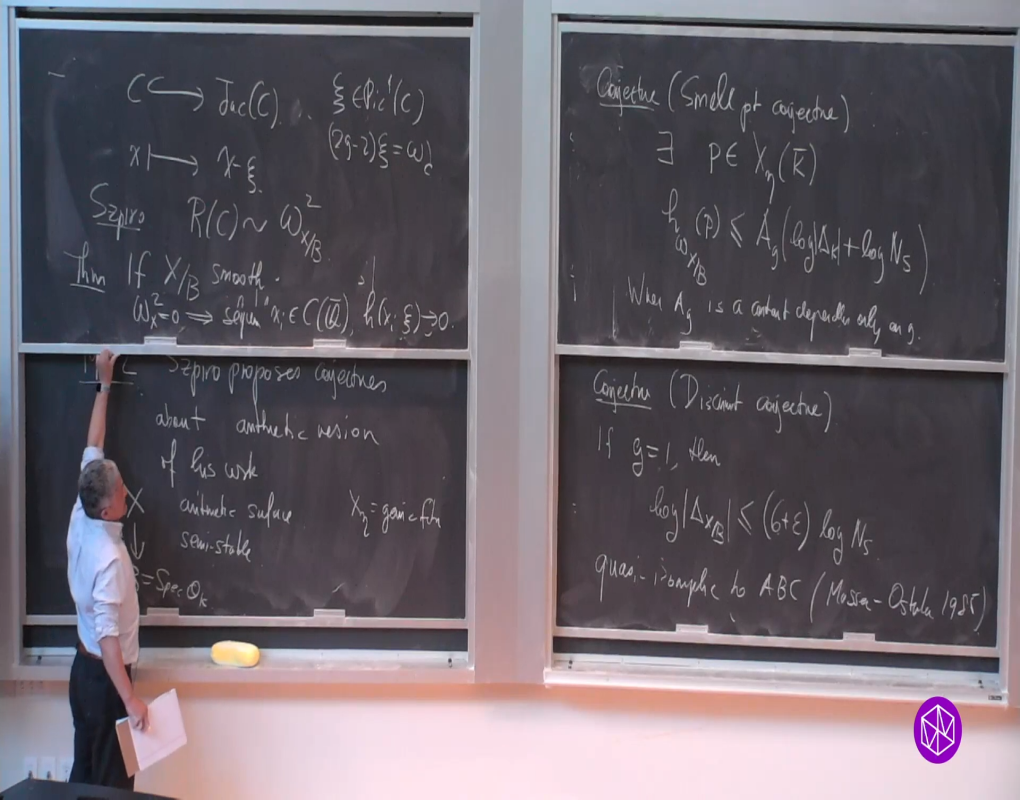 C ↪ Jac(C). ξ ∈ Pic¹(C)
x ↦ x-ξ. (2g-2)ξ = ω_c
Szpiro R(C) ~ ω²_{X/B}
Thm If X/B smooth.
ω²_X = 0 ⟹ x_i ∈ C(Q̄), h(x_i-ξ) → 0.
Szpiro proposes conjectures
about arithmetic version
of his work
X arithmetic surface X_η = generic fibre
↓ semi-stable
B = Spec O_K
Conjecture (Small pt conjecture)
∃ P ∈ X_η(K̄)
h_{ω_{X/B}}(P) ≤ A_g(log|Δ_K| + log N_S)
When A_g is a constant depending only on g.
Conjecture (Discriminant conjecture)
If g=1, then
log|Δ_{X/B}| ≤ (6+ε) log N_S
quasi-isomorphic to ABC (Masser-Osterlé 1985)